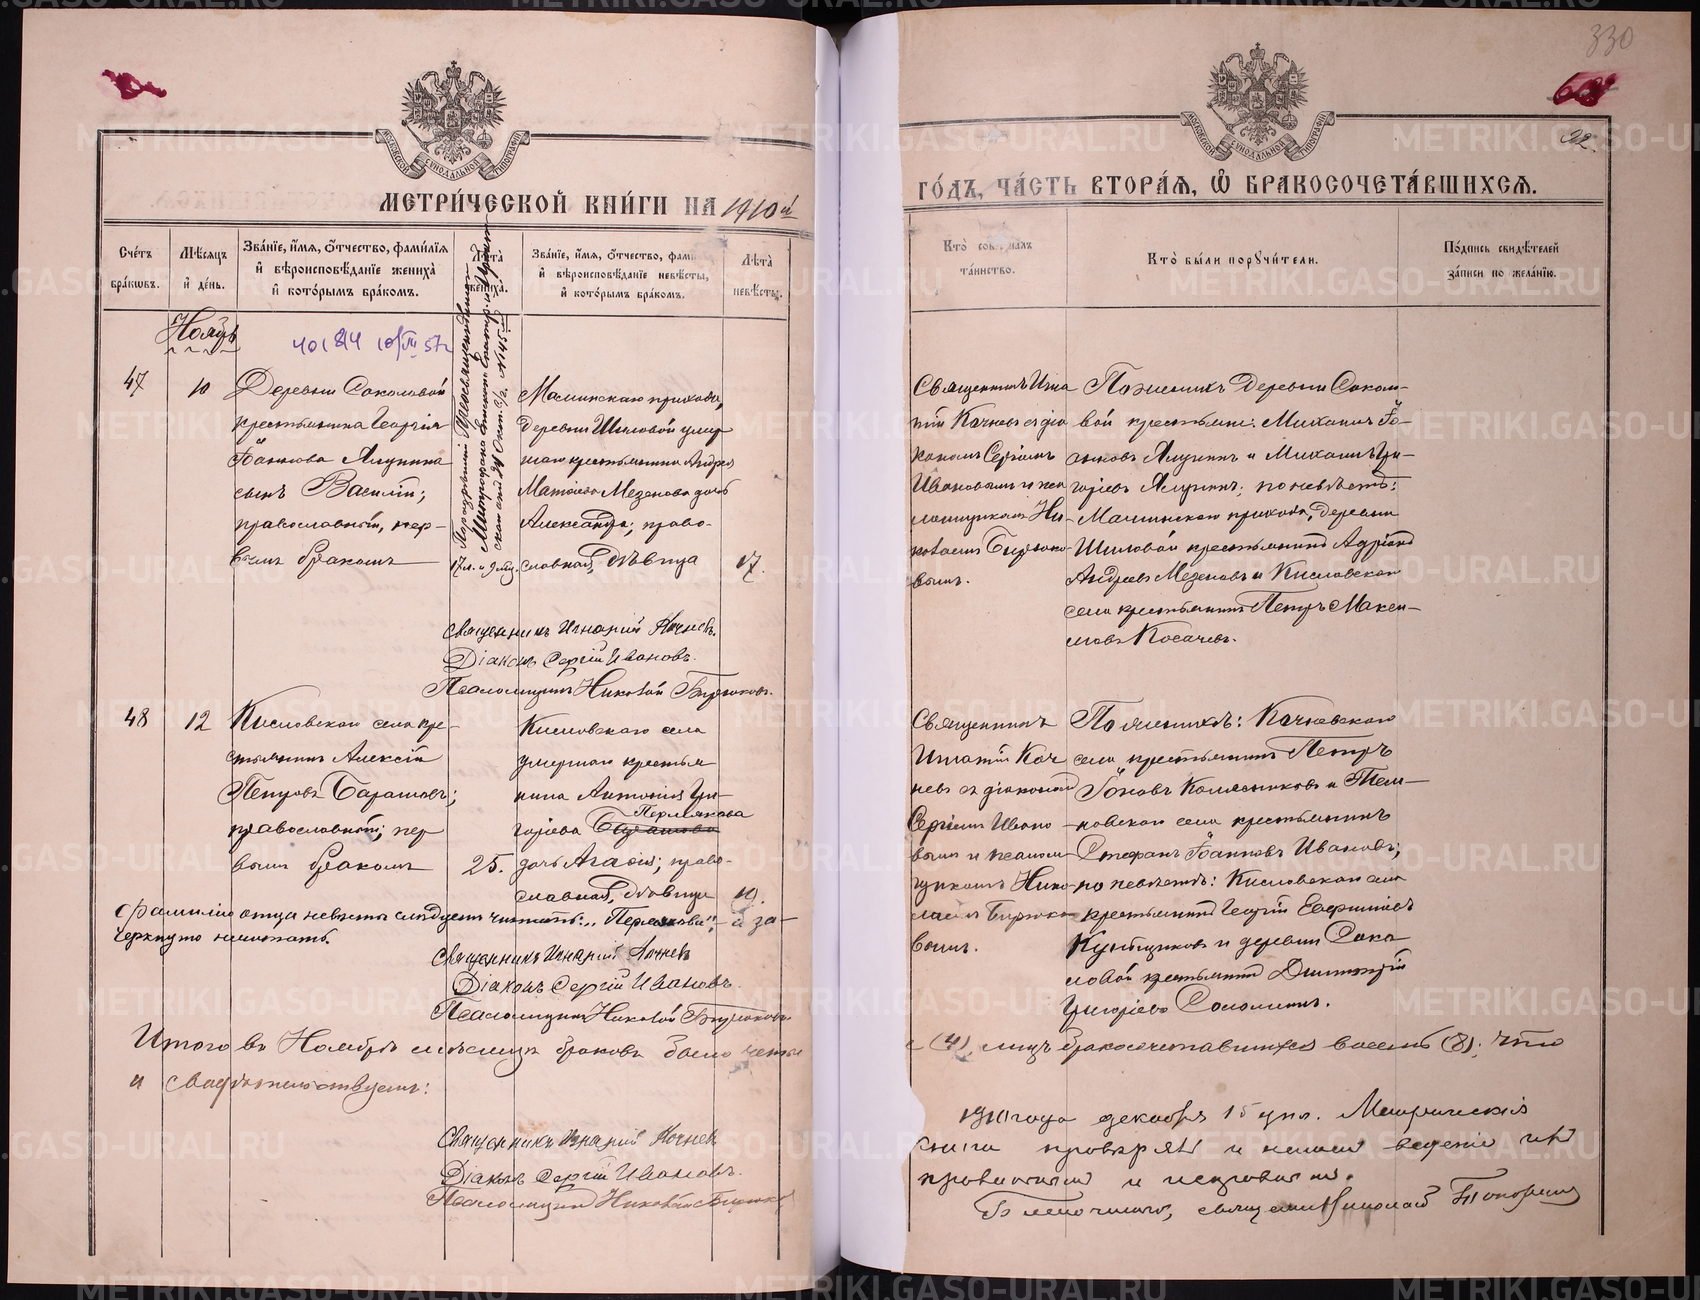 330
22.
МЕТРИ́ЧЕСКОЙ КНИ́ГИ НА 1910 й
ГО́ДЪ, ЧА́СТЬ ВТОРА́Я, Ѡ БРАКОСОЧЕТА́ВШИХСЯ.
Сче́тъ бра́кѡвъ.
Мѣ́сяцъ и́ де́нь.
Зва́нїе, и́мя, о́тчество, фами́лїя и́ вѣроисповѣ́данїе жениха̀ и́ кото́рымъ бра́комъ.
Лѣ́та̀ жениха̀.
Зва́нїе, и́мя, о́тчество, фами́лїя и́ вѣроисповѣ́данїе невѣ́сты, и́ кото́рымъ бра́комъ.
Лѣ́та̀ невѣ́сты.
Кто̀ сов
та́инство.
Кто̀ бы́ли порꙋчи́тели.
По́дпись свидѣ́телей
за́писи по жела́нїю.
Ноябрь
47
10
Деревни Соколовой
крестьянина Георгія
Іоаннова Ялунина
сынъ Василій;
православный, пер-
вымъ бракомъ
17 л. и 9 м.
Маминскаго прихода,
деревни Шиловой умер
шаго крестьянина Андрея
Мезенова дочь
Александра; право-
славная, дѣвица
17.
Священникъ Игна
тій Кочневъ съ діа
кономъ Сергіемъ
Ивановымъ и пса
ломщикомъ Ни-
колаемъ Бирюко
вымъ.
По женихѣ: деревни Соколо-
вой крестьяне: Михаилъ Іо-
анновъ Ялунинъ и Михаилъ Гри-
горіевъ Ялунинъ; по невѣстѣ:
Маминскаго прихода, деревни
Шиловой крестьянинъ Адріанъ
Андреевъ Мезеновъ и Кисловскаго
села крестьянинъ Петръ Макси-
мовъ Косачевъ.
Священникъ Игнатій Кочневъ.
Діаконъ Сергій Ивановъ.
Псаломщикъ Николай Бирюковъ.
48
12
Кисловскаго села кре-
стьянинъ Алексій
Петровъ Барашовъ;
православный; пер
вымъ бракомъ
25.
Кисловскаго села
умершаго крестья
нина Антонія Гри-
горіева
Пермякова
дочь Агафія; право-
славная, дѣвица
Священникъ
Игнатій Коч
невъ съ діакономъ
Сергіемъ Ивано
вымъ и псалом
щикомъ Нико
лаемъ Бирюко
вымъ.
По женихѣ: Кочневскаго
села крестьянинъ Петръ
Іоновъ Колясниковъ и Тем-
новскаго села крестьянинъ
Стефанъ Іоанновъ Ивановъ;
по невѣстѣ: Кисловскаго села
крестьянинъ Георгій Евфиміевъ
и деревни Соко
ловой крестьянинъ Димитрій
Григоріевъ Соломеинъ.
Фамилію отца невѣсты слѣдуетъ читать: „Пермякова", а за-
черкнуто не читать.
Священникъ Игнатій Кочневъ
Діаконъ Сергій Ивановъ.
Псаломщикъ Николай Бирюковъ.
Итого въ Ноябрѣ мѣсяцѣ браковъ было четы
(4), лицъ бракосочетавшихся восемь (8); что
и свидѣтельствуемъ:
Священникъ Игнатій Кочнев
Діаконъ Сергій Ивановъ.
Псаломщикъ Николай Бирюков
1910 года декабря 15 дня. Метрическія
книга и
Благочинный, священникъ Николай Топорковъ
METRIKI.GASO-URAL.RU